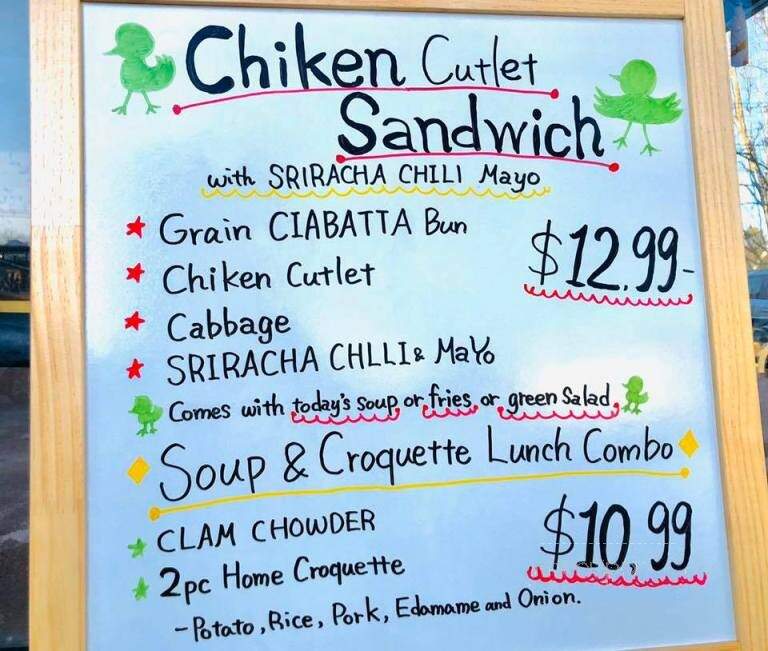 Chiken Cutlet
Sandwich
with SRIRACHA CHILI Mayo
Grain CIABATTA Bun
$12.99-
Chiken Cutlet
Cabbage
SRIRACHA CHLLI & Mayo
Comes with today's soup, or fries, or green Salad,
Soup & Croquette Lunch Combo
CLAM CHOWDER
$10,99
2pc Home Croquette
- Potato, Rice, Pork, Edamame and Onion.